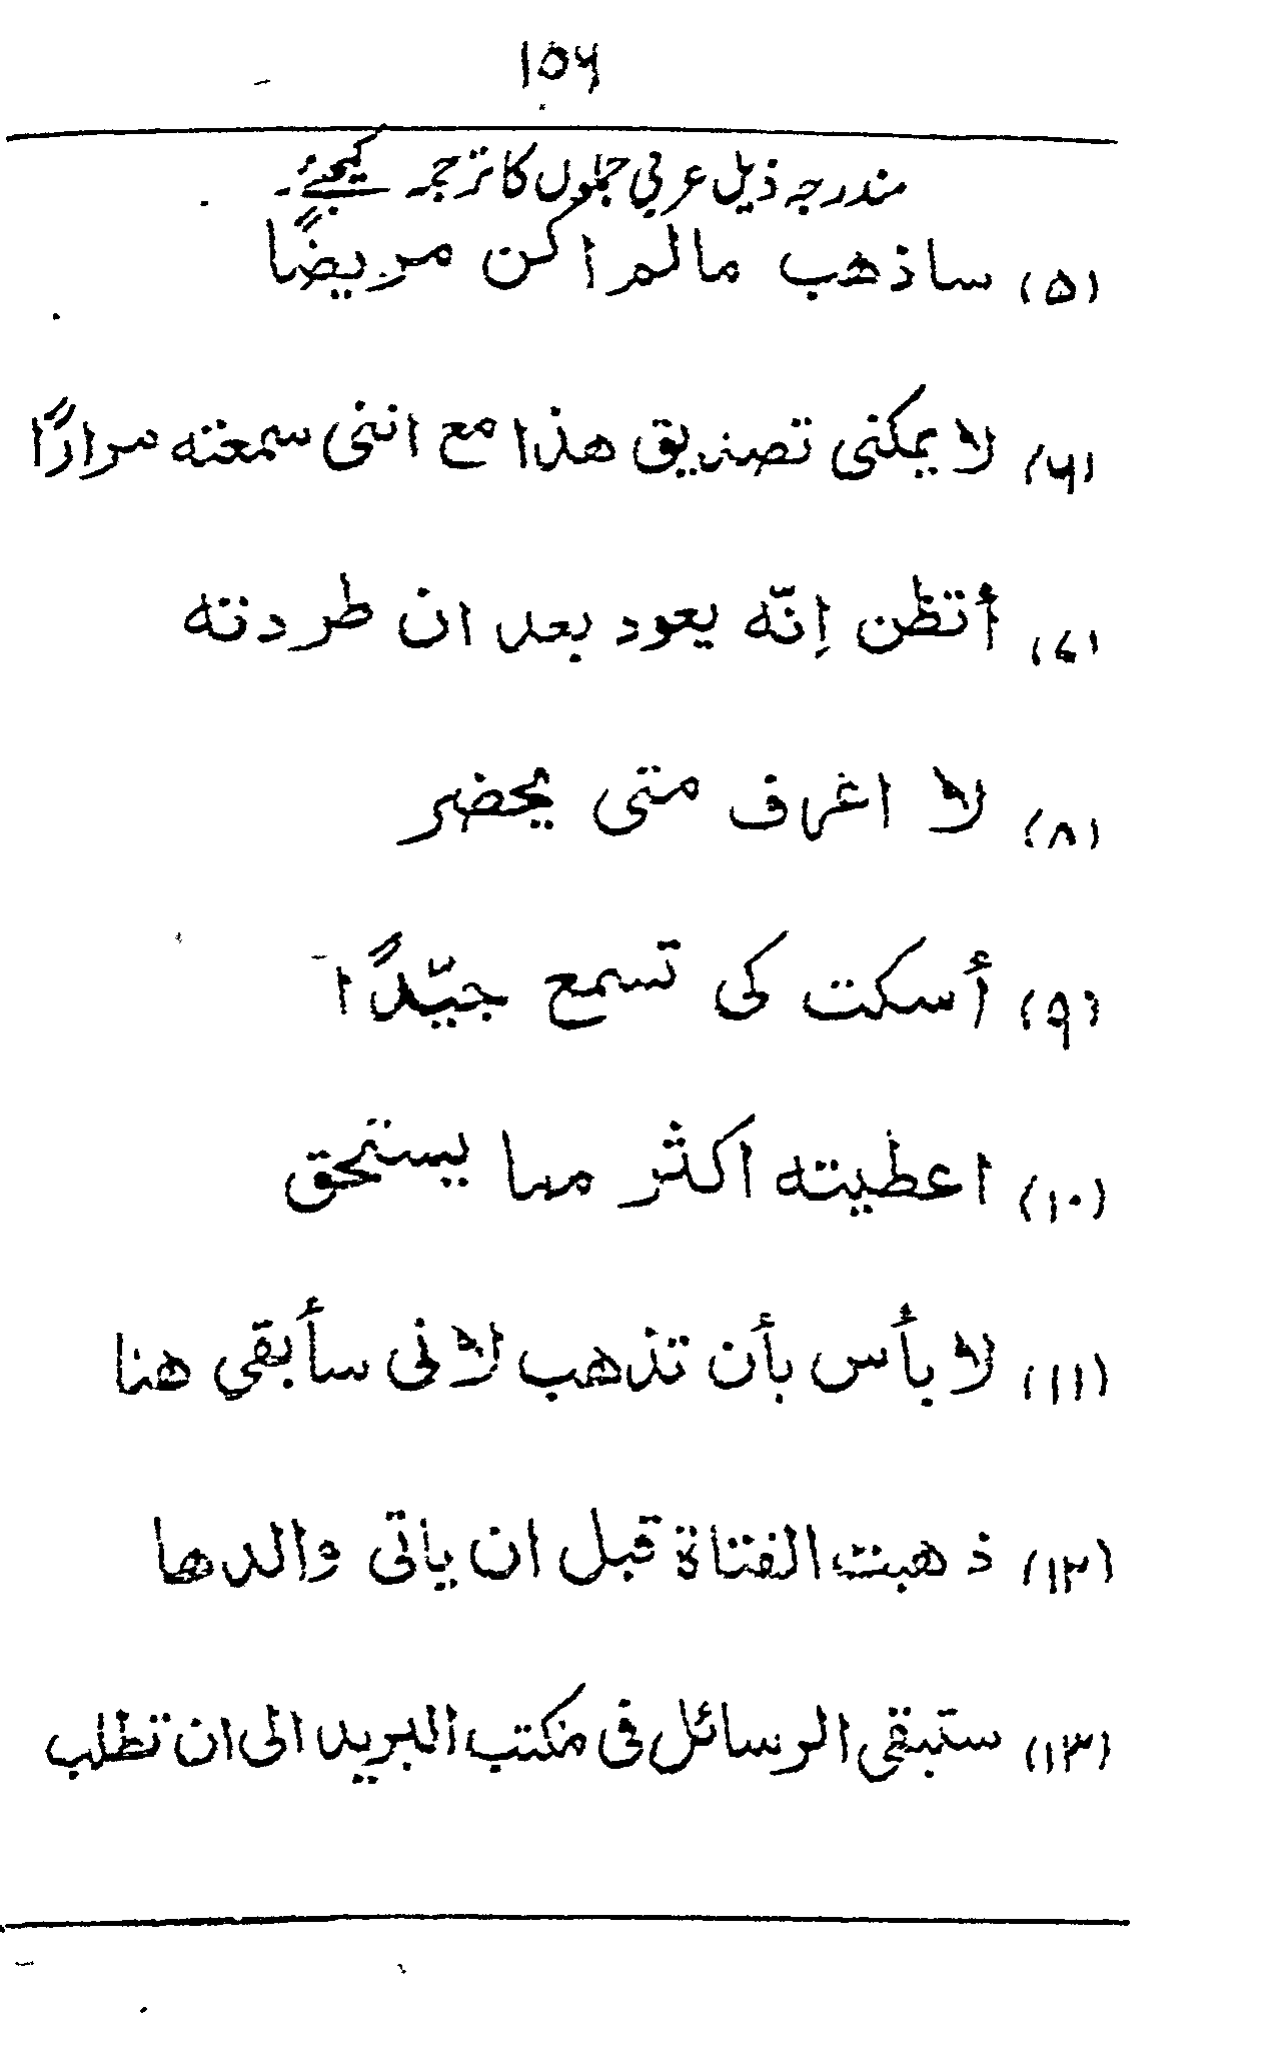 ۱۵۶
مندرجہ ذیل عربی جملوں کا ترجمہ کیجئے۔
(۵) ساذهب مالم اکن مریضًا
(۶) لا یمکننی تصدیق هذا مع اننی سمعته مرارًا
(۷) أتظن اِنّه یعود بعد ان طردته
(۸) لا اعرف متی یحضر
(۹) أسکت کی تسمع جیّدًا
(۱۰) اعطیته اکثر مما یستحق
(۱۱) لا بأس بأن تذهب لانی سأبقی هنا
(۱۲) ذهبت الفتاة قبل ان یاتی والدها
(۱۳) ستبقی الرسائل فی مکتب البرید الی ان تطلب